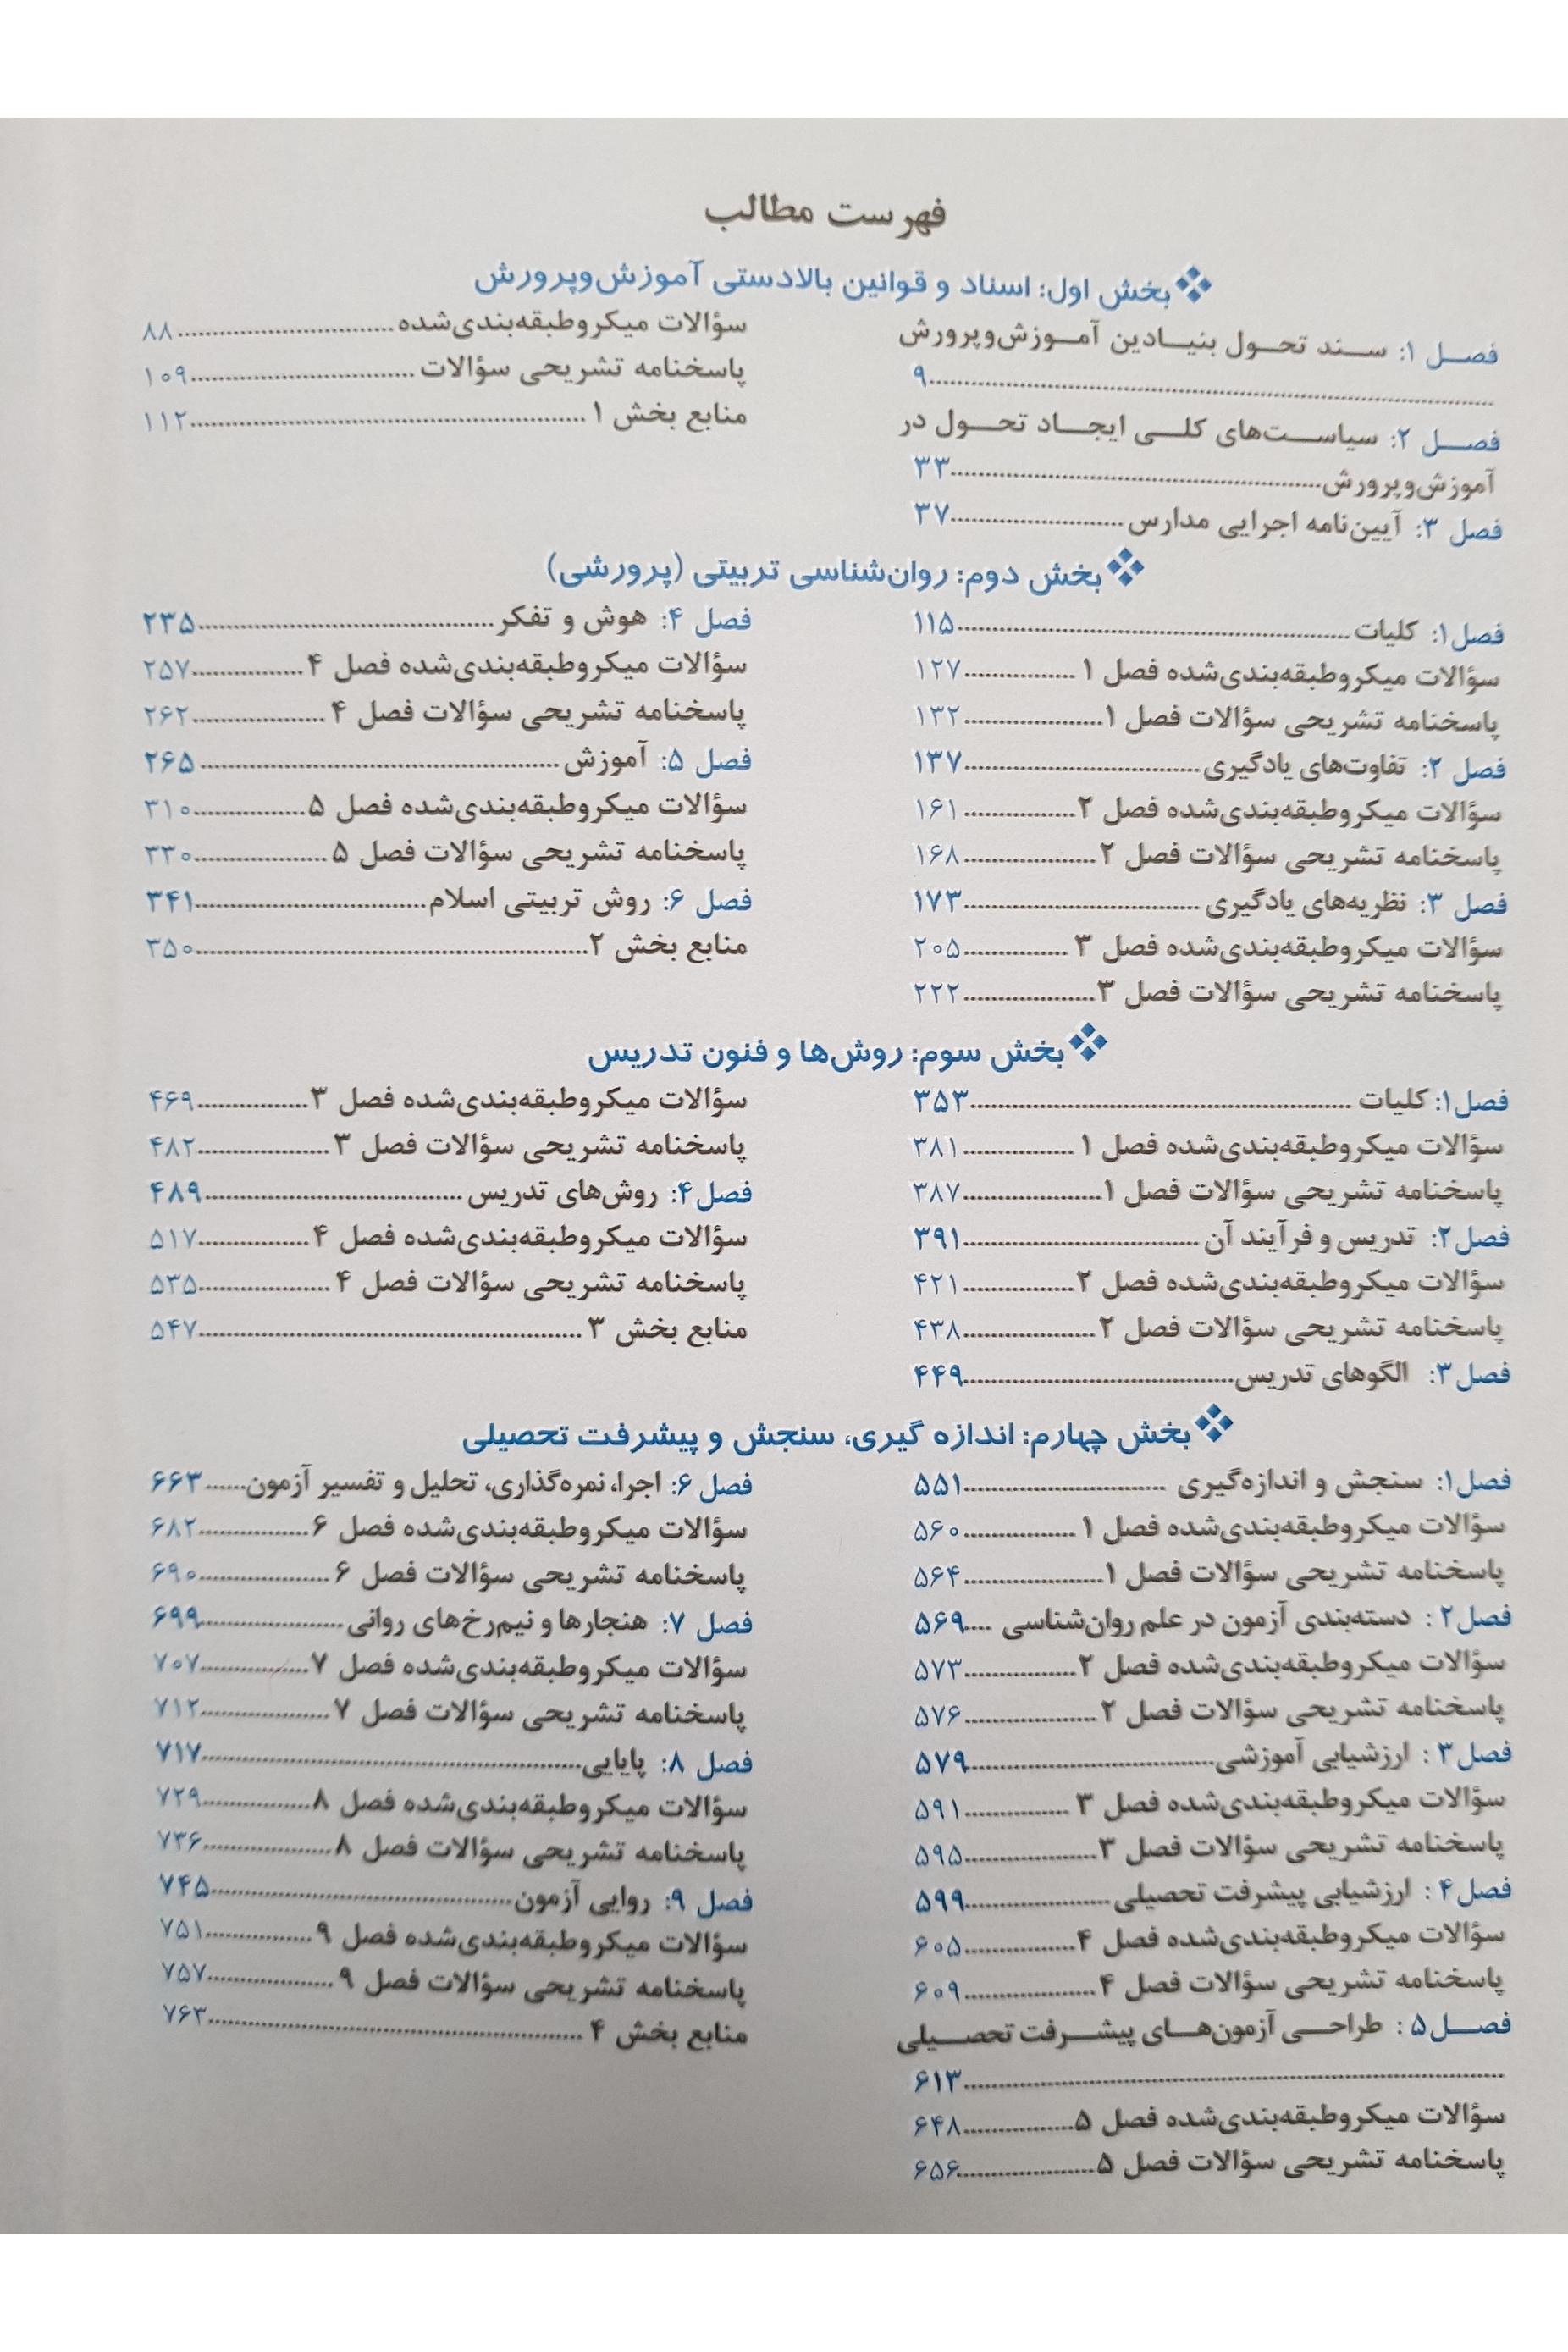 فهرست مطالب
بخش اول: اسناد و قوانین بالادستی آموزش‌وپرورش
فصل ۱: سند تحول بنیادین آموزش‌وپرورش
..........۹
فصل ۲: سیاست‌های کلی ایجاد تحول در
آموزش‌وپرورش..........۳۳
فصل ۳: آیین‌نامه اجرایی مدارس..........۳۷
سؤالات میکروطبقه‌بندی‌شده..........۸۸
پاسخنامه تشریحی سؤالات..........۱۰۹
منابع بخش ۱..........۱۱۲
بخش دوم: روان‌شناسی تربیتی (پرورشی)
فصل۱: کلیات..........۱۱۵
سؤالات میکروطبقه‌بندی‌شده فصل ۱..........۱۲۷
پاسخنامه تشریحی سؤالات فصل ۱..........۱۳۲
فصل ۲: تفاوت‌های یادگیری..........۱۳۷
سؤالات میکروطبقه‌بندی‌شده فصل ۲..........۱۶۱
پاسخنامه تشریحی سؤالات فصل ۲..........۱۶۸
فصل ۳: نظریه‌های یادگیری..........۱۷۳
سؤالات میکروطبقه‌بندی‌شده فصل ۳..........۲۰۵
پاسخنامه تشریحی سؤالات فصل ۳..........۲۲۲
فصل ۴: هوش و تفکر..........۲۳۵
سؤالات میکروطبقه‌بندی‌شده فصل ۴..........۲۵۷
پاسخنامه تشریحی سؤالات فصل ۴..........۲۶۲
فصل ۵: آموزش..........۲۶۵
سؤالات میکروطبقه‌بندی‌شده فصل ۵..........۳۱۰
پاسخنامه تشریحی سؤالات فصل ۵..........۳۳۰
فصل ۶: روش تربیتی اسلام..........۳۴۱
منابع بخش ۲..........۳۵۰
بخش سوم: روش‌ها و فنون تدریس
فصل۱: کلیات..........۳۵۳
سؤالات میکروطبقه‌بندی‌شده فصل ۱..........۳۸۱
پاسخنامه تشریحی سؤالات فصل ۱..........۳۸۷
فصل۲: تدریس و فرآیند آن..........۳۹۱
سؤالات میکروطبقه‌بندی‌شده فصل ۲..........۴۲۱
پاسخنامه تشریحی سؤالات فصل ۲..........۴۳۸
فصل۳: الگوهای تدریس..........۴۴۹
سؤالات میکروطبقه‌بندی‌شده فصل ۳..........۴۶۹
پاسخنامه تشریحی سؤالات فصل ۳..........۴۸۲
فصل۴: روش‌های تدریس..........۴۸۹
سؤالات میکروطبقه‌بندی‌شده فصل ۴..........۵۱۷
پاسخنامه تشریحی سؤالات فصل ۴..........۵۳۵
منابع بخش ۳..........۵۴۷
بخش چهارم: اندازه گیری، سنجش و پیشرفت تحصیلی
فصل۱: سنجش و اندازه‌گیری..........۵۵۱
سؤالات میکروطبقه‌بندی‌شده فصل ۱..........۵۶۰
پاسخنامه تشریحی سؤالات فصل ۱..........۵۶۴
فصل۲ : دسته‌بندی آزمون در علم روان‌شناسی ....۵۶۹
سؤالات میکروطبقه‌بندی‌شده فصل ۲..........۵۷۳
پاسخنامه تشریحی سؤالات فصل ۲..........۵۷۶
فصل۳ : ارزشیابی آموزشی..........۵۷۹
سؤالات میکروطبقه‌بندی‌شده فصل ۳..........۵۹۱
پاسخنامه تشریحی سؤالات فصل ۳..........۵۹۵
فصل۴ : ارزشیابی پیشرفت تحصیلی..........۵۹۹
سؤالات میکروطبقه‌بندی‌شده فصل ۴..........۶۰۵
پاسخنامه تشریحی سؤالات فصل ۴..........۶۰۹
فصل۵ : طراحی آزمون‌های پیشرفت تحصیلی
..........۶۱۳
سؤالات میکروطبقه‌بندی‌شده فصل ۵..........۶۴۸
پاسخنامه تشریحی سؤالات فصل ۵..........۶۵۶
فصل ۶: اجرا، نمره‌گذاری، تحلیل و تفسیر آزمون......۶۶۳
سؤالات میکروطبقه‌بندی‌شده فصل ۶..........۶۸۲
پاسخنامه تشریحی سؤالات فصل ۶..........۶۹۰
فصل ۷: هنجارها و نیم‌رخ‌های روانی..........۶۹۹
سؤالات میکروطبقه‌بندی‌شده فصل ۷..........۷۰۷
پاسخنامه تشریحی سؤالات فصل ۷..........۷۱۲
فصل ۸: پایایی..........۷۱۷
سؤالات میکروطبقه‌بندی‌شده فصل ۸..........۷۲۹
پاسخنامه تشریحی سؤالات فصل ۸..........۷۳۶
فصل ۹: روایی آزمون..........۷۴۵
سؤالات میکروطبقه‌بندی‌شده فصل ۹..........۷۵۱
پاسخنامه تشریحی سؤالات فصل ۹..........۷۵۷
منابع بخش ۴..........۷۶۳